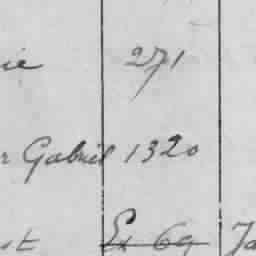 ie 271
r Gabriel 1320
st Ex 69 Ja